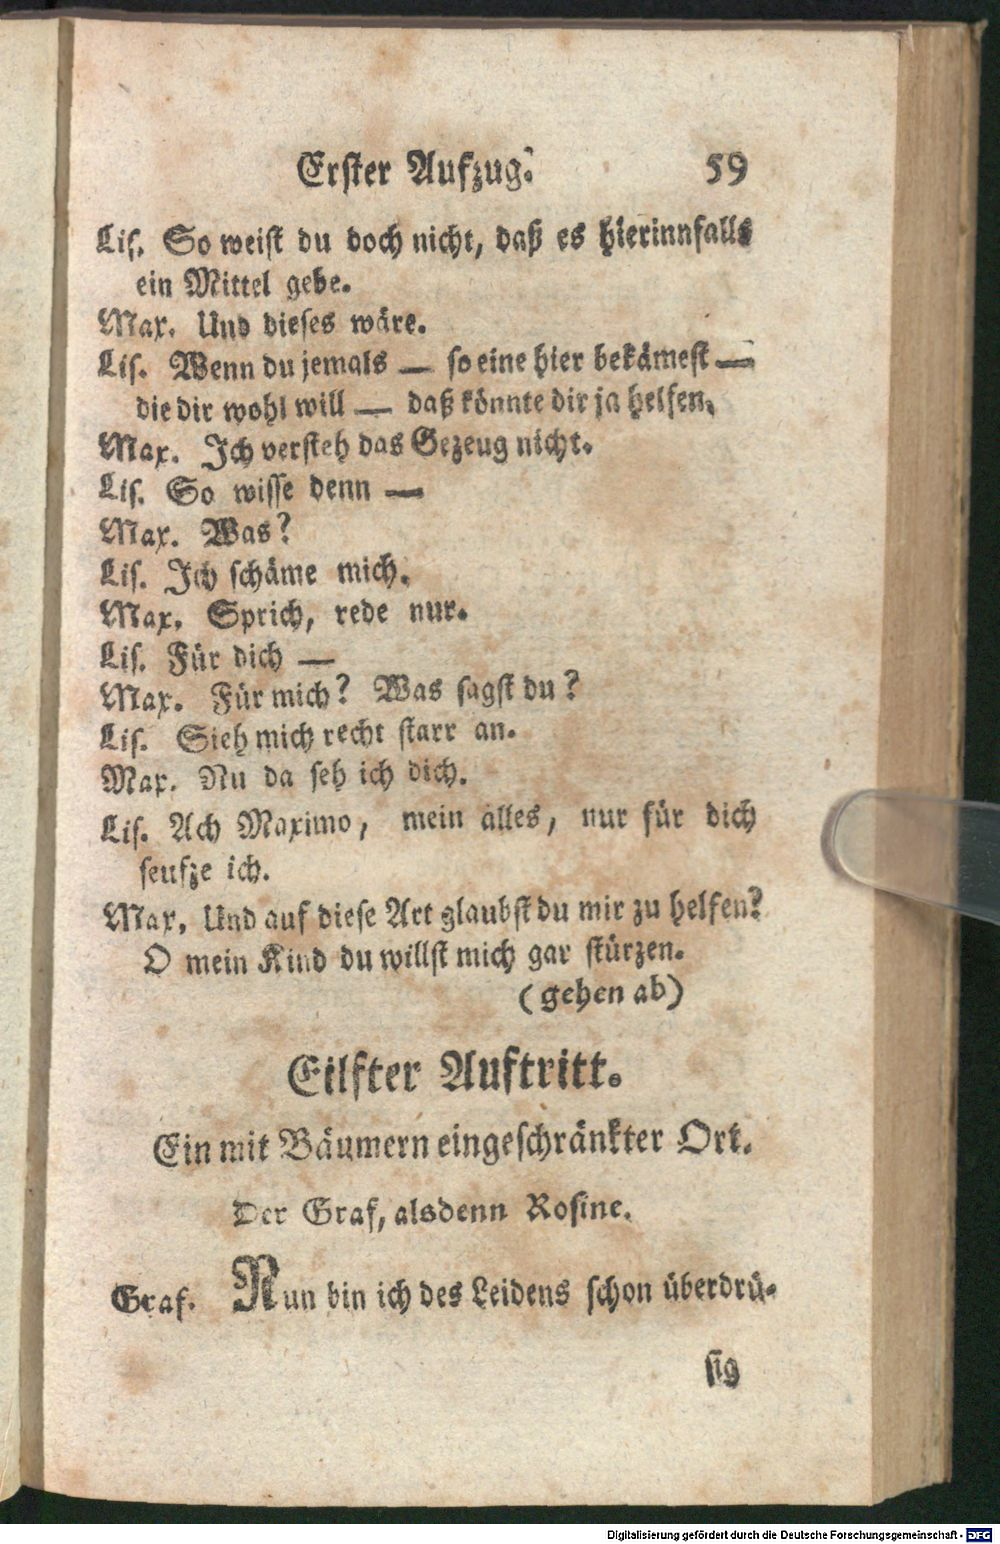 Erster Aufzug. 59
Lis. So weist du doch nicht, daß es hierinnfalls
ein Mittel gebe.
Max. Und dieses wäre.
Lis. Wenn du jemals — so eine hier bekämest —
die dir wohl will — daß könnte dir ja helfen.
Max. Ich versteh das Gezeug nicht.
Lis. So wisse denn —
Max. Was?
Lis. Ich schäme mich.
Max. Sprich, rede nur.
Lis. Für dich —
Max. Für mich? Was sagst du?
Lis. Sieh mich recht starr an.
Max. Nu da seh ich dich.
Lis. Ach Maximo, mein alles, nur für dich
seufze ich.
Max. Und auf diese Art glaubst du mir zu helfen?
O mein Kind du willst mich gar stürzen.
(gehen ab)
Eilfter Auftritt.
Ein mit Bäumern eingeschränkter Ort.
Der Graf, alsdenn Rosine.
Graf. Nun bin ich des Leidens schon überdrü-
sig
Digitalisierung gefördert durch die Deutsche Forschungsgemeinschaft - DFG